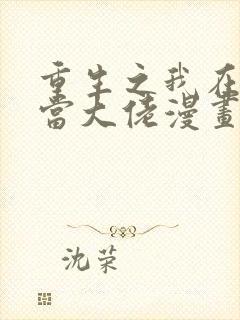 重生之我在
當大佬漫畫
沈荣